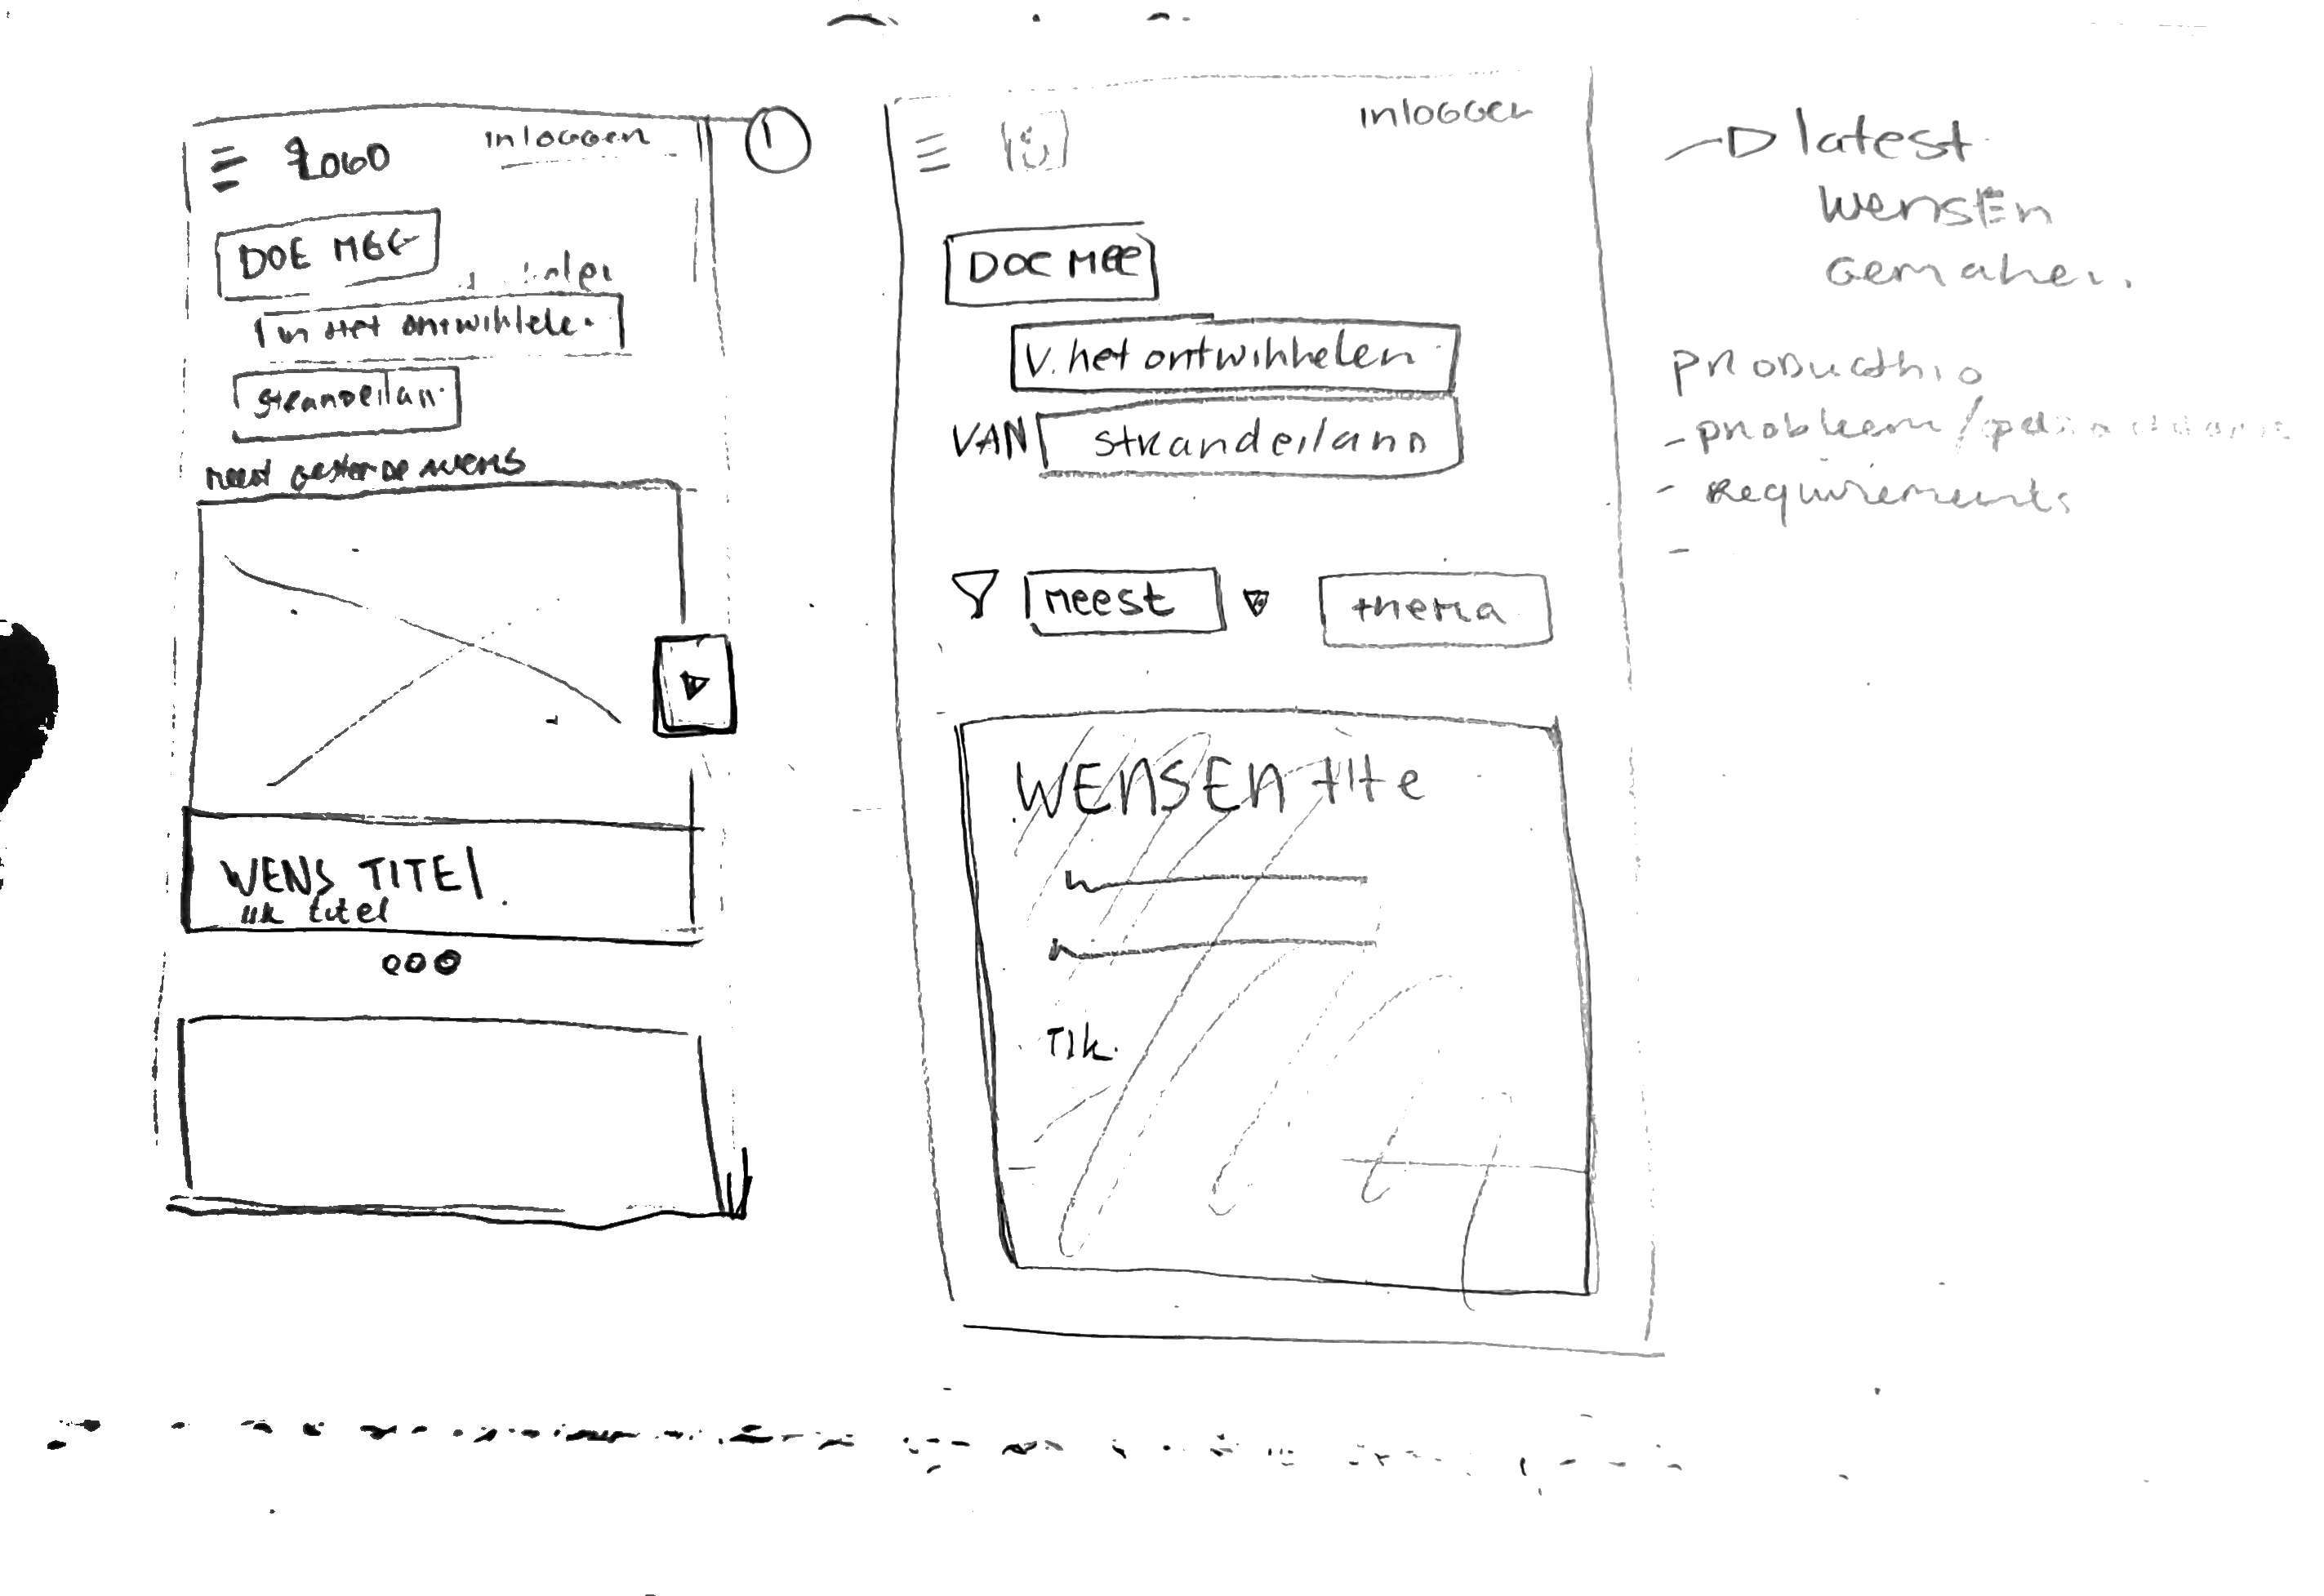 LOGO
inloggen
1
DOE MEE
in het ontwikkele
strandeilan
meest gestemde wens
WENS TITEL
tik titel
inloggen
DOE MEE
V. het ontwikkelen
VAN strandeiland
meest
thema
WENSEN tite
Tik.
latest
wensEn
Gemaken.
- probleem /
- Requirements